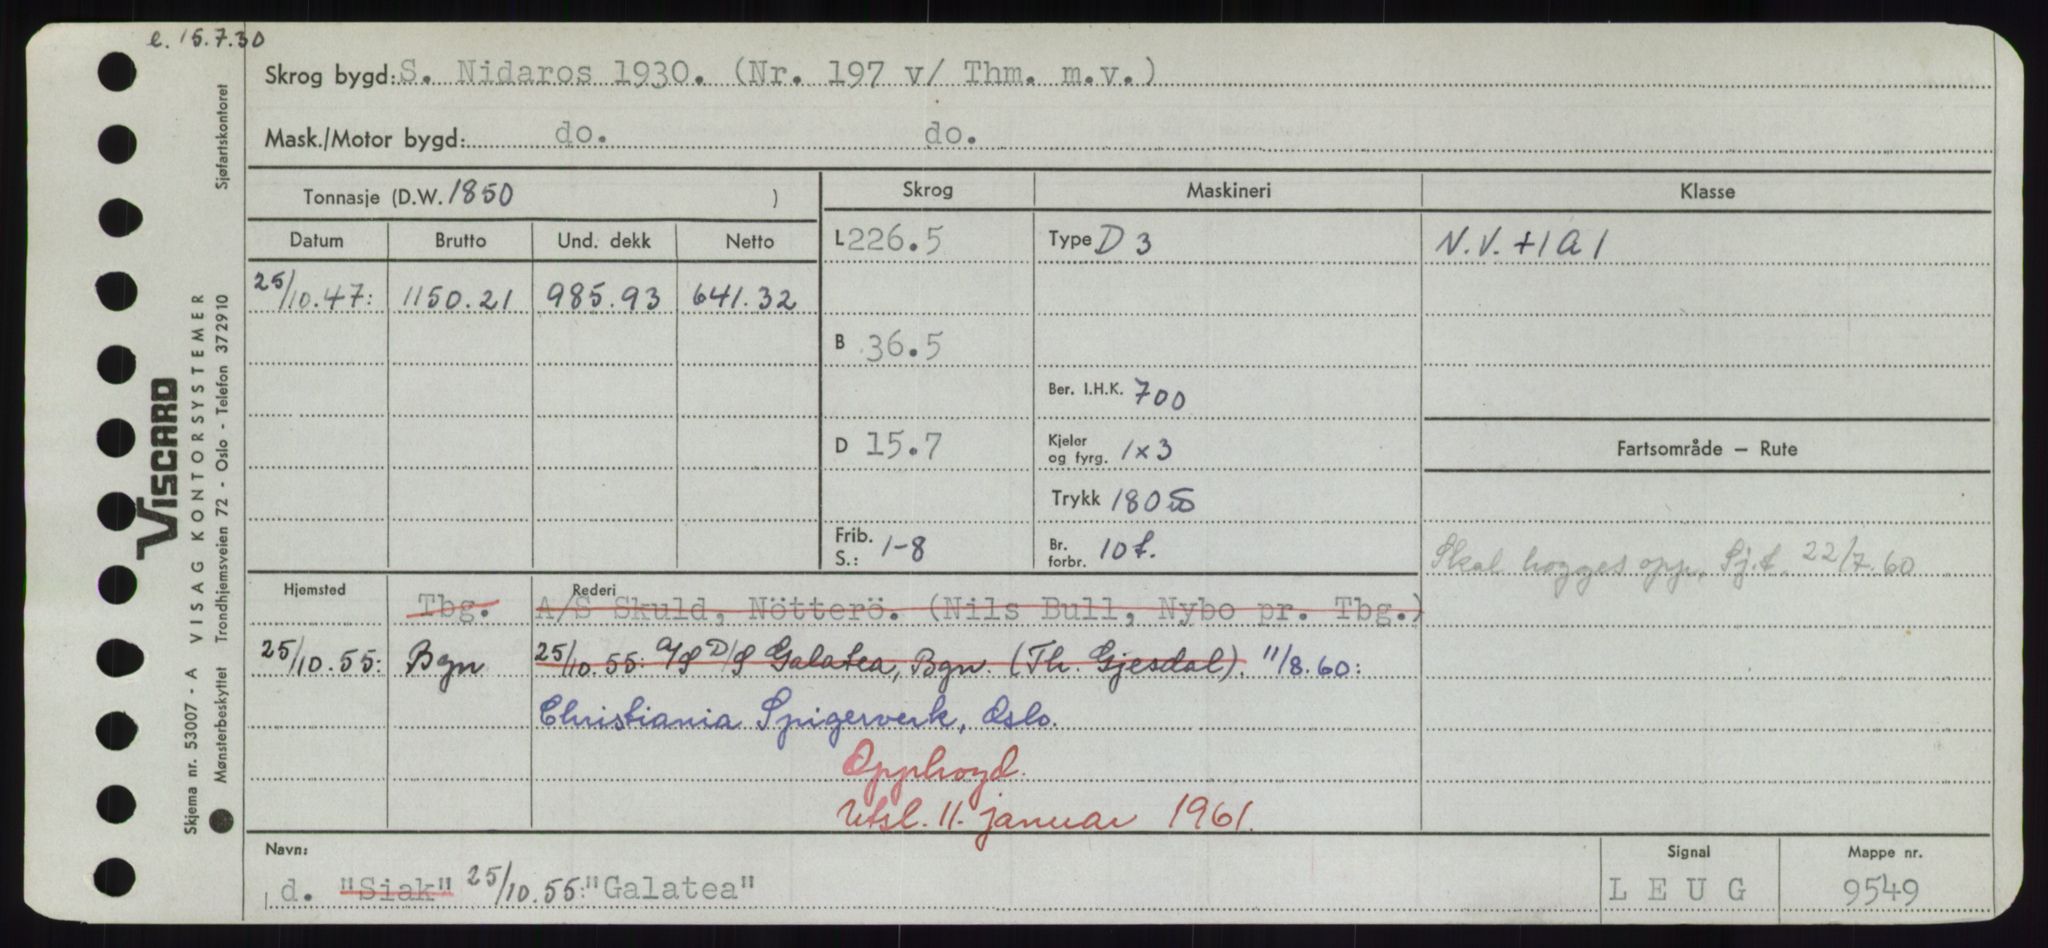 e. 15.7.30
Skrog bygd: S. Nidaros 1930. (Nr. 197 v/ Thm. m.v.)
Mask./Motor bygd: do. do.
Tonnasje (D.W. 1850 )
Skrog Maskineri Klasse
Datum Brutto Und. dekk Netto
L 226.5 Type D 3 N.V. +1A1
25/10.47: 1150.21 985.93 641.32
B 36.5
Ber. I.H.K. 700
D 15.7 Kjeler og fyrg. 1x3 Fartsområde — Rute
Trykk 180 S
Frib. S.: 1-8 Br. forbr. 10 t. Skal hogges opp. Sj.t. 22/7.60
Hjemsted Rederi
Tbg. A/S Skuld, Nötterö. (Nils Bull, Nybo pr. Tbg.)
25/10.55: Bgn 25/10.55: A/S D/S Galatea, Bgn. (Th. Gjesdal). 11/8.60:
Christiania Spigerverk, Oslo.
Opphogd.
Utsl. 11. januar 1961.
Navn: Signal Mappe nr.
d. "Siak" 25/10.55: "Galatea" LEUG 9549
VISCARD
Skjema nr. 53007 - A VISAG KONTORSYSTEMER
Mønsterbeskyttet Trondhjemsveien 72 - Oslo - Telefon 372910 Sjøfartskontoret